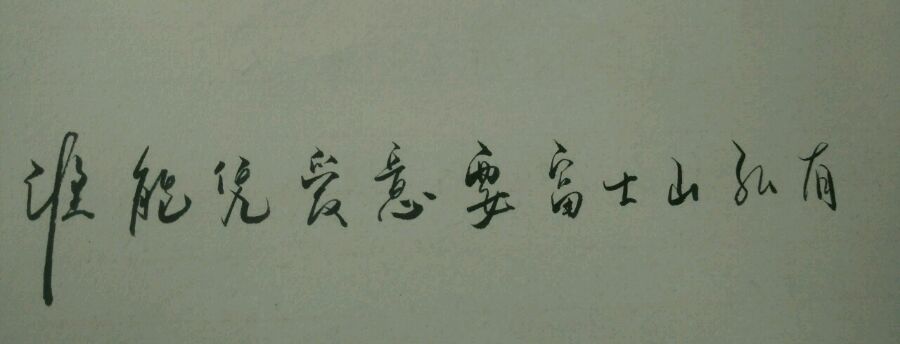 谁能凭爱意要富士山私有